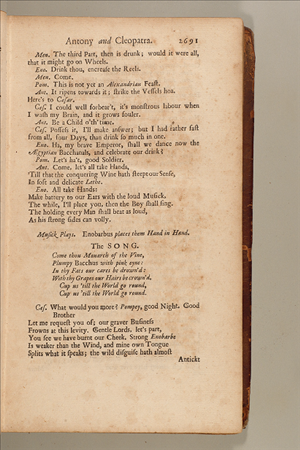 Antony and Cleopatra. 2691
Men. The third Part, then is drunk; would it were all,
that it might go on Wheels.
Eno. Drink thou, encrease the Reels.
Men. Come.
Pom. This is not yet an Alexandrian Feast.
Ant. It ripens towards it; strike the Vessels hoa.
Here's to Cæsar.
Cæs. I could well forbear't, it's monstrous labour when
I wash my Brain, and it grows fouler.
Ant. Be a Child o'th' time.
Cæs. Possess it, I'll make answer; but I had rather fast
from all, four Days, than drink so much in one.
Eno. Ha, my brave Emperor, shall we dance now the
Ægyptian Bacchanals, and celebrate our drink?
Pom. Let's ha't, good Soldier.
Ant. Come, let's all take Hands,
'Till that the conquering Wine hath steept our Sense,
In soft and delicate Lethe.
Eno. All take Hands:
Make battery to our Ears with the loud Musick.
The while, I'll place you, then the Boy shall sing.
The holding every Man shall beat as loud,
As his strong sides can volly.
Musick Plays. Enobarbus places them Hand in Hand.
The SONG.
Come thou Monarch of the Vine,
Plumpy Bacchus with pink eyne:
In thy Fats our cares be drown'd:
With thy Grapes our Hairs be crown'd.
Cup us 'till the World go round,
Cup us 'till the World go round.
Cæs. What would you more? Pompey, good Night. Good
Brother
Let me request you of; our graver Business
Frowns at this levity. Gentle Lords, let's part,
You see we have burnt our Cheek. Strong Enobarbe
Is weaker than the Wind, and mine own Tongue
Splits what it speaks; the wild disguise hath almost
Antickt